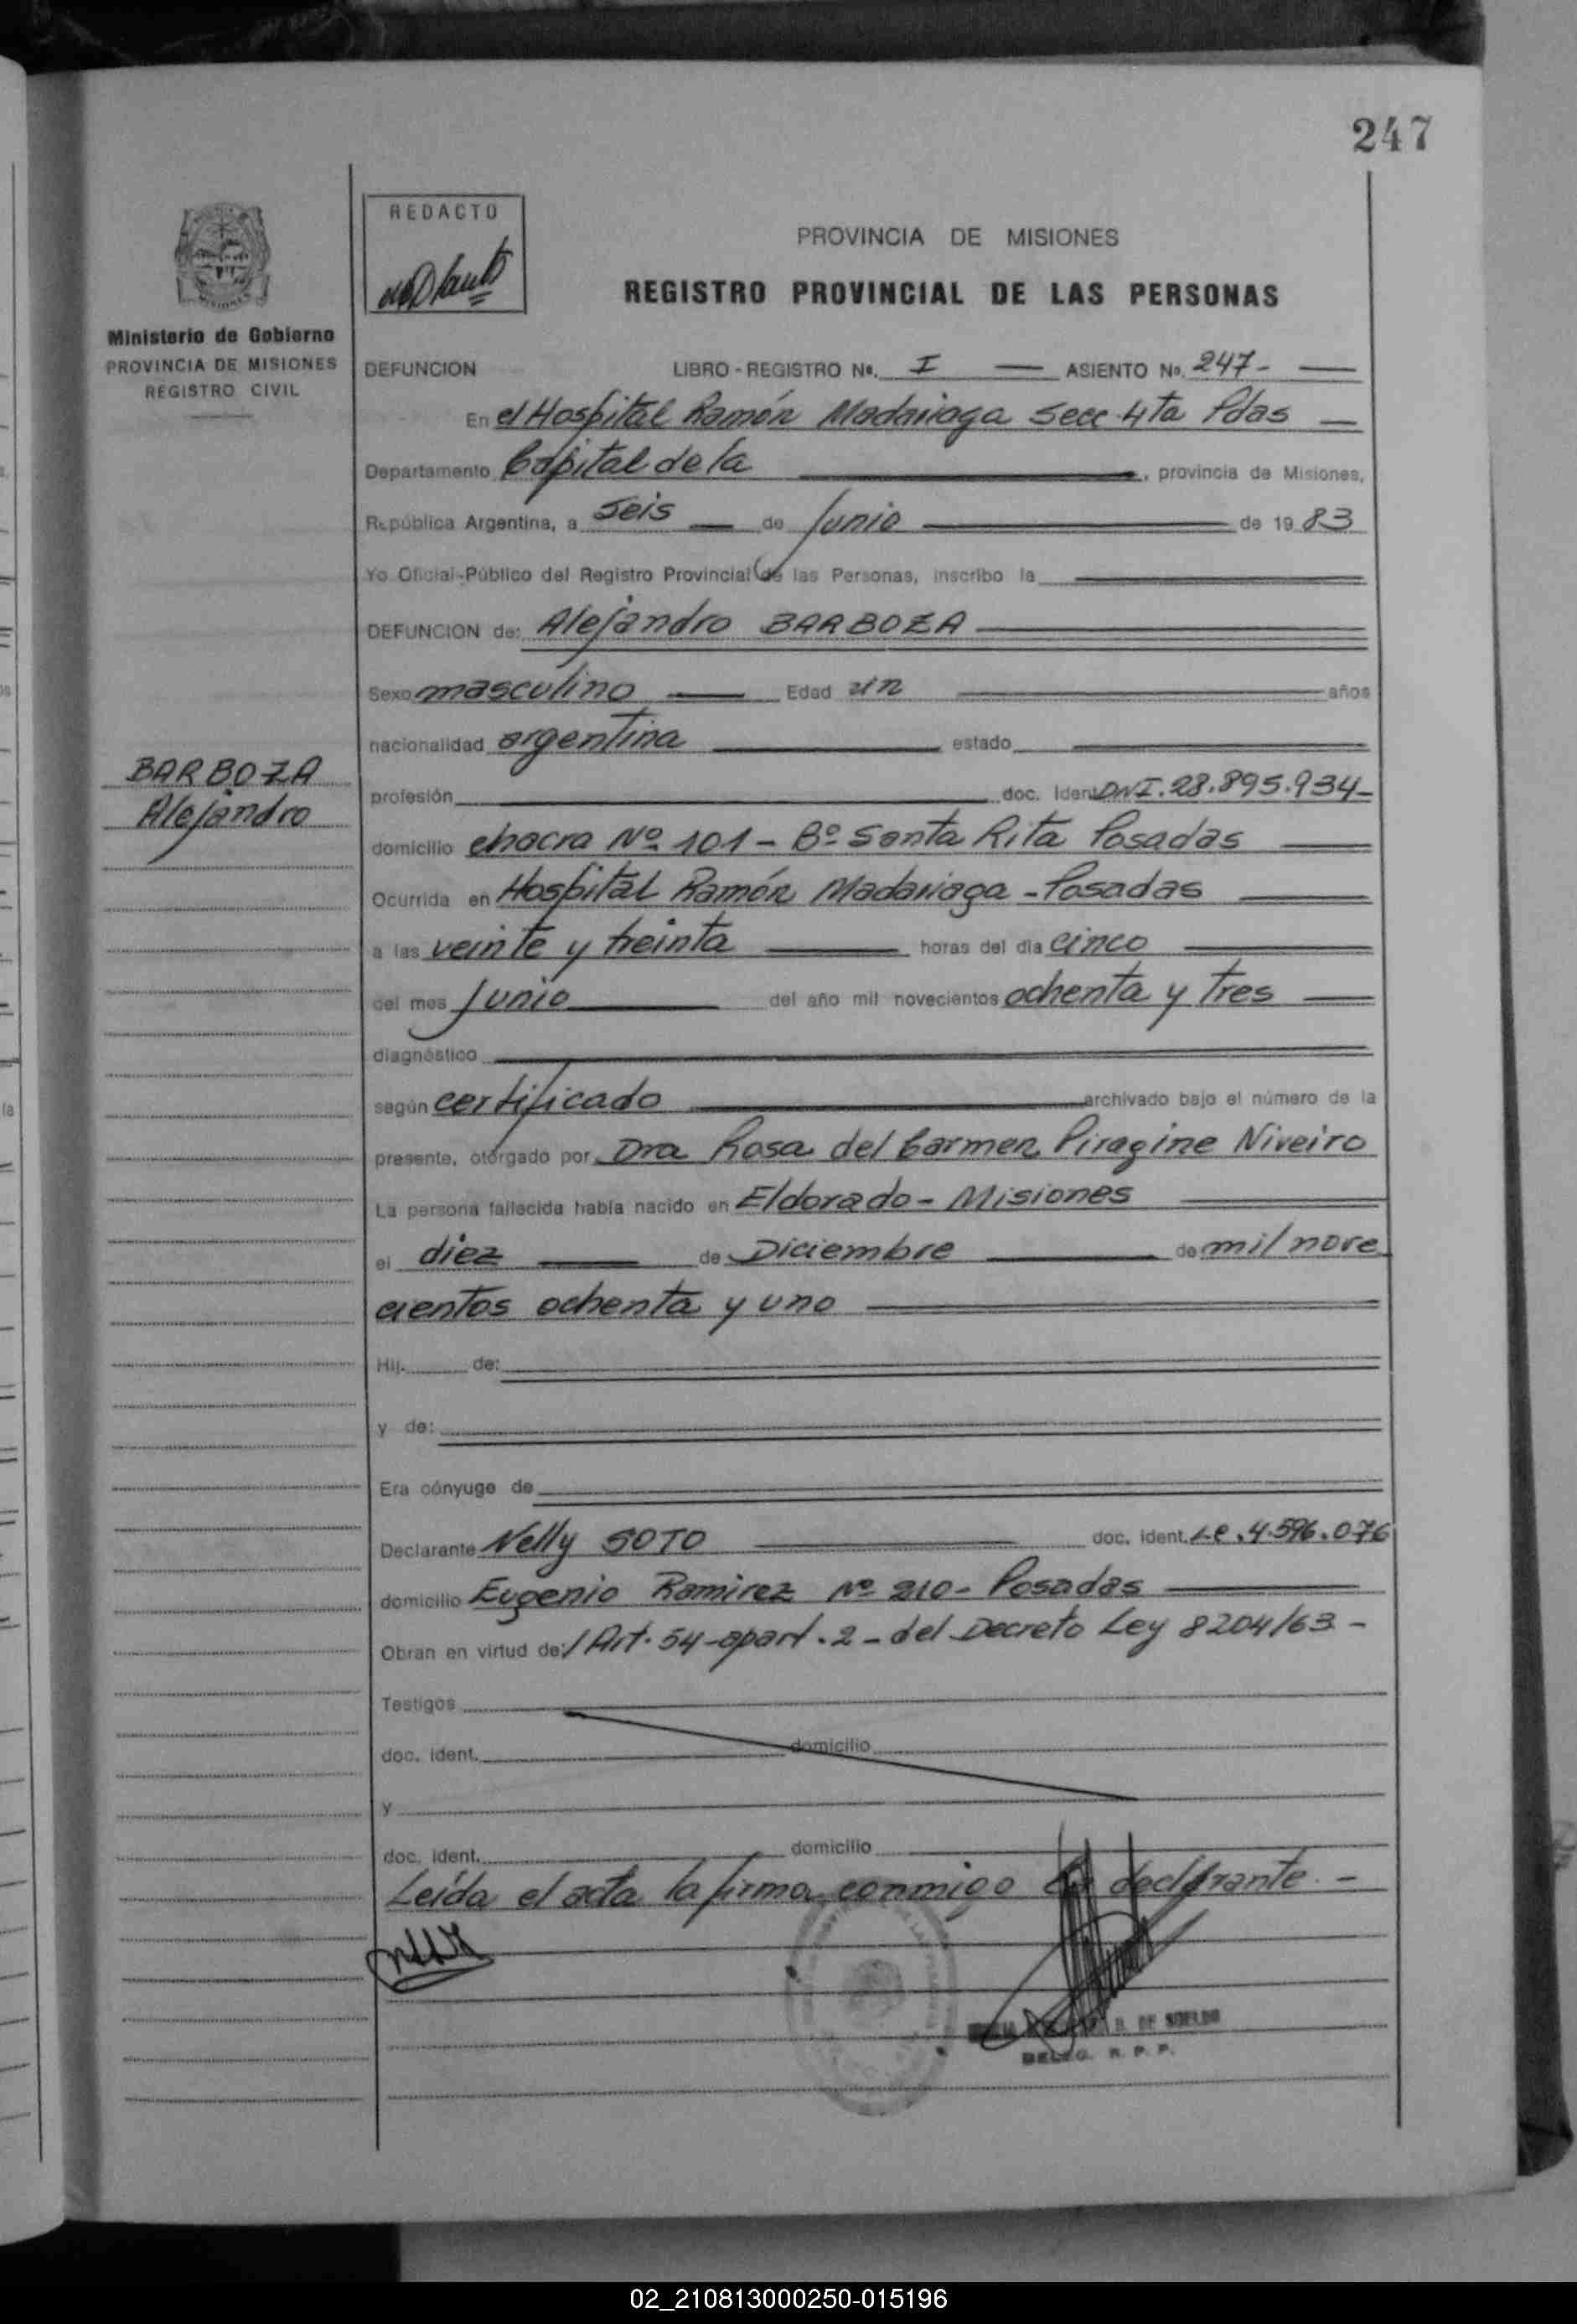 247
REDACTO
PROVINCIA DE MISIONES
REGISTRO PROVINCIAL DE LAS PERSONAS
Ministerio de Gobierno
PROVINCIA DE MISIONES
REGISTRO CIVIL
DEFUNCION LIBRO - REGISTRO No. I ASIENTO No. 247-
En el Hospital Ramón Madariaga Secc 4ta Pdas
Departamento Capital de la, provincia de Misiones,
República Argentina, a seis de Junio de 1983
Yo Oficial Público del Registro Provincial de las Personas, inscribo la
DEFUNCION de: Alejandro BARBOZA
Sexo masculino Edad un años
nacionalidad argentina estado
BARBOZA
Alejandro
profesión doc. Ident. DNI. 28.895.934-
domicilio chacra Nº 101 - Bº Santa Rita Posadas
Ocurrida en Hospital Ramón Madariaga - Posadas
a las veinte y treinta horas del día cinco
del mes Junio del año mil novecientos ochenta y tres
diagnóstico
según certificado archivado bajo el número de la
presente, otorgado por Dra Rosa del Carmen Piragine Niveiro
La persona fallecida había nacido en Eldorado - Misiones
el diez de Diciembre de mil nove
cientos ochenta y uno
Hij. de:
y de:
Era cónyuge de
Declarante Nelly SOTO doc. ident. L.C. 4.596.076
domicilio Eugenio Ramirez Nº 210- Posadas
Obran en virtud de: / Art. 54 - apart. 2 - del Decreto Ley 8204/63 -
Testigos
doc. ident. domicilio
y
doc. ident. domicilio
Leída el acta la firma conmigo la declarante. -
B. DE SOELBO
DELEG. R. P. P.
02_210813000250-015196